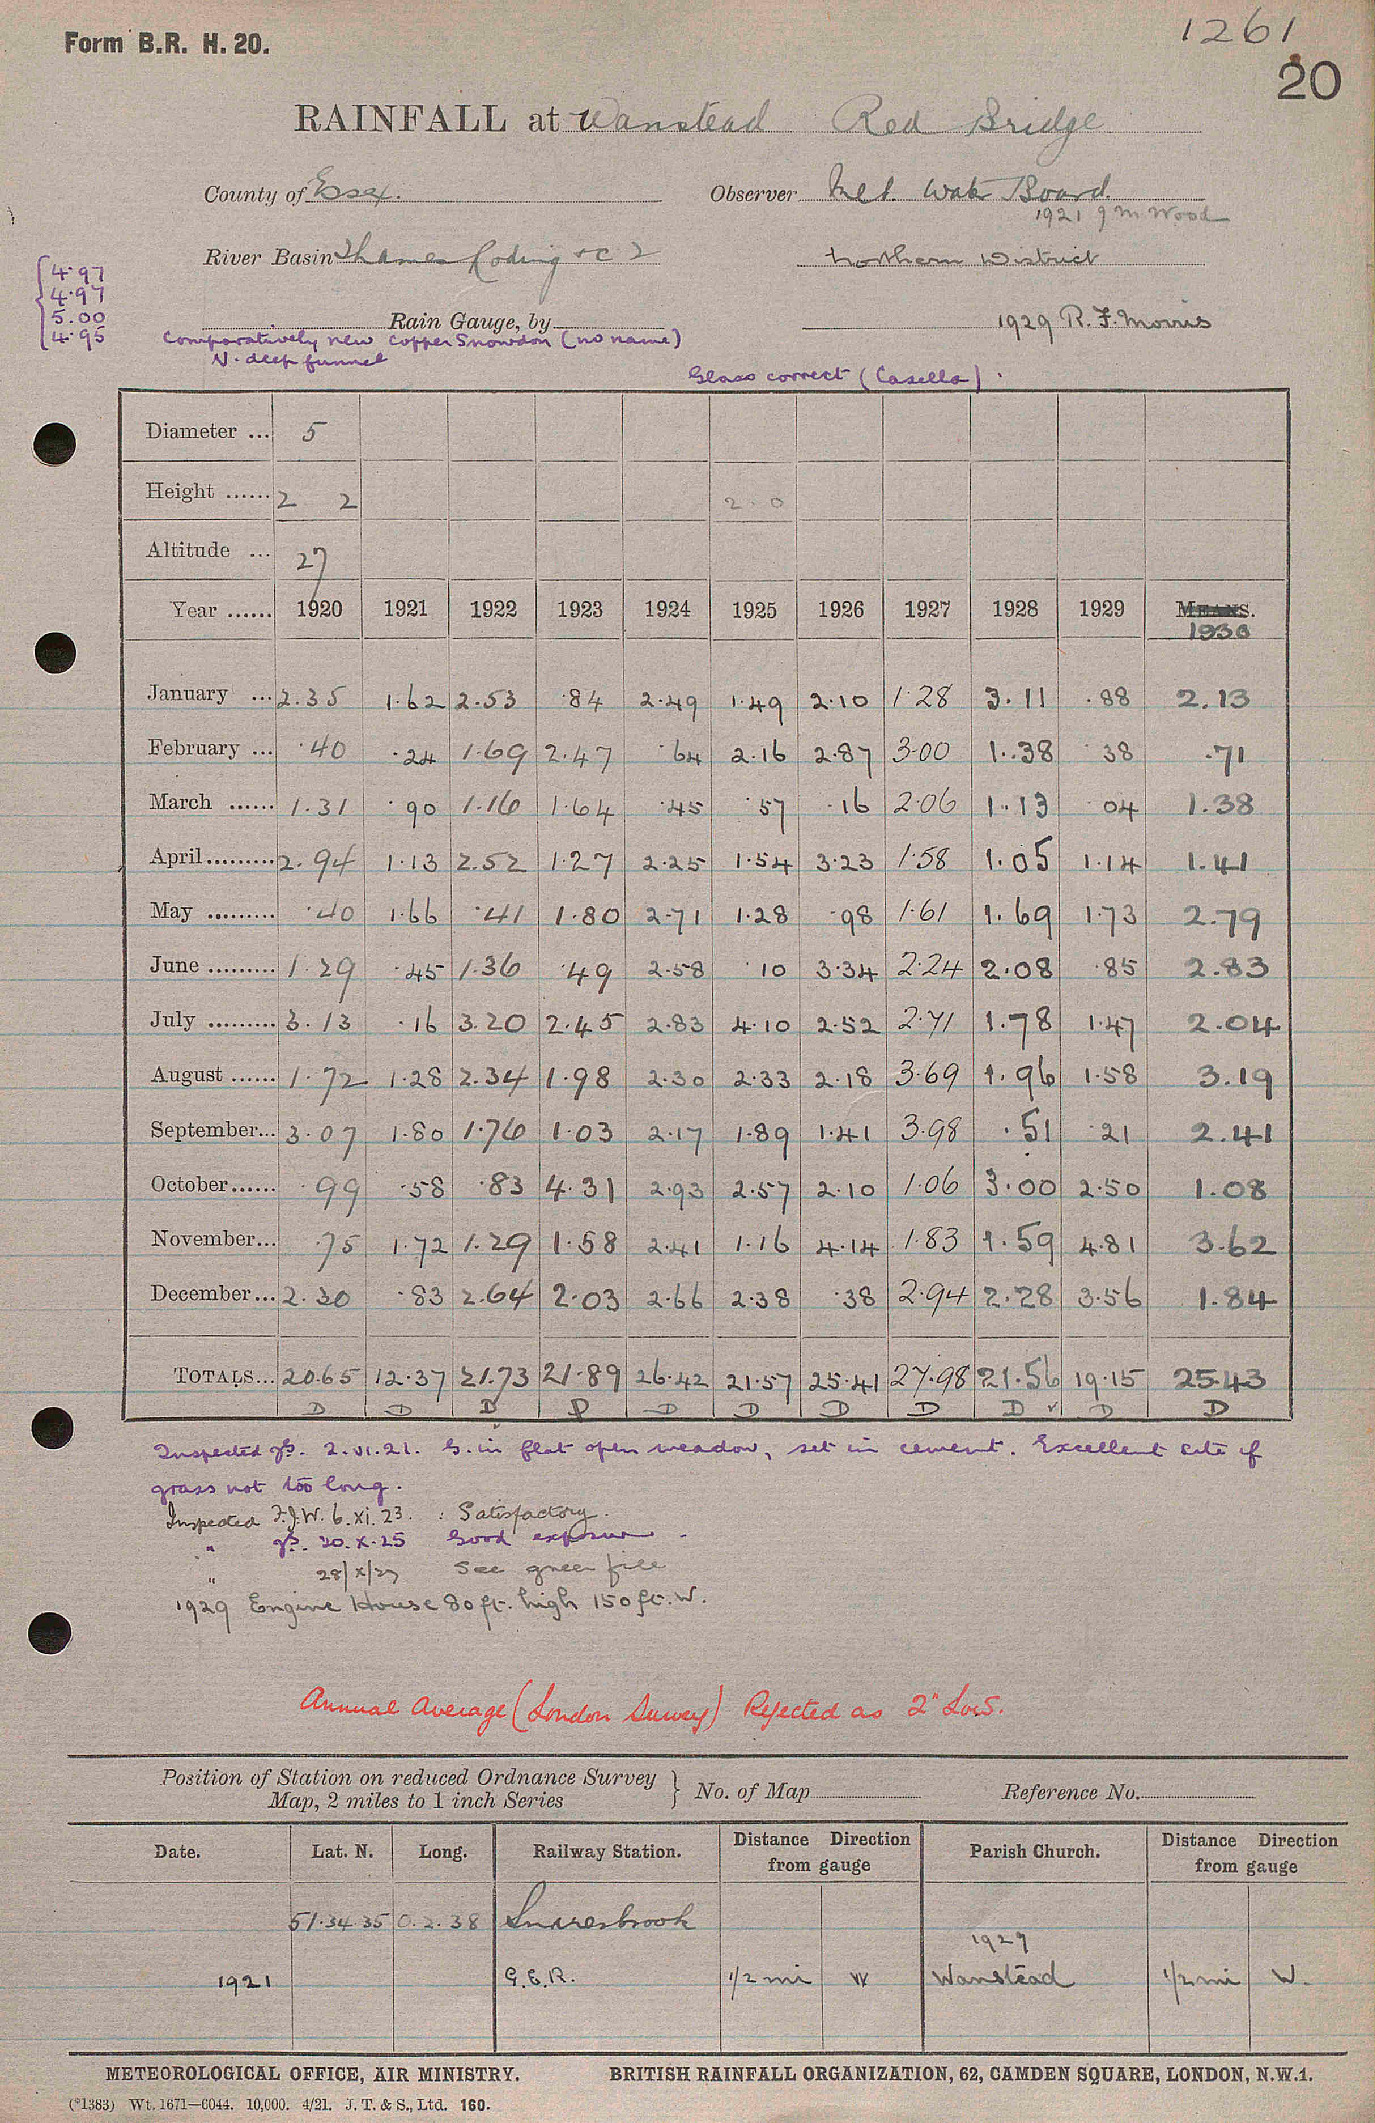 Form B.R. H. 20.
1261
20
RAINFALL at Wanstead Red Bridge
County of Essex.
Observer Met. Wat Board.
1921 J M Wood
River Basin Thames Roding
Northern District
4.97
4.97
5.00
4.95
Rain Gauge, by
1929 R. F. Morris
Comparatively new copper Snowdon (no name)
V. deep funnel
Glass correct (Casella).
Diameter ... 5
Height ...... 2 2 2.0
Altitude ... 27
Year ...... 1920 1921 1922 1923 1924 1925 1926 1927 1928 1929 MEANS.
1930
January ... 2.35 1.62 2.53 .84 2.49 1.49 2.10 1.28 3.11 .88 2.13
February ... .40 .24 1.69 2.47 .64 2.16 2.87 3.00 1.38 .38 .71
March ...... 1.31 .90 1.16 1.64 .45 .57 .16 2.06 1.13 .04 1.38
April ......... 2.94 1.13 2.52 1.27 2.25 1.54 3.23 1.58 1.05 1.14 1.41
May ......... .40 1.66 .41 1.80 2.71 1.28 .98 1.61 1.69 1.73 2.79
June ......... 1.29 .45 1.36 .49 2.58 .10 3.34 2.24 2.08 .85 2.83
July ......... 3.13 .16 3.20 2.45 2.83 4.10 2.52 2.71 1.78 1.47 2.04
August ...... 1.72 1.28 2.34 1.98 2.30 2.33 2.18 3.69 1.96 1.58 3.19
September... 3.07 1.80 1.76 1.03 2.17 1.89 1.41 3.98 .51 .21 2.41
October...... .99 .58 .83 4.31 2.93 2.57 2.10 1.06 3.00 2.50 1.08
November... .75 1.72 1.29 1.58 2.41 1.16 4.14 1.83 1.59 4.81 3.62
December... 2.30 .83 2.64 2.03 2.66 2.38 .38 2.94 2.28 3.56 1.84
TOTALS... 20.65 12.37 21.73 21.89 26.42 21.57 25.41 27.98 21.56 19.15 25.43
D D D D D D D D D D D
Inspected 2.VI.21. G. in flat open meadow, set in cement. Excellent site if
grass not too long.
Inspected F.J.W. 6.xi.23. : Satisfactory.
" 20.X.25 Good exposure.
" 28/X/27 See green file
1929 Engine House 80 ft. high 150 ft. W.
Annual Average (London Survey) Rejected as 2" Low.
Position of Station on reduced Ordnance Survey
Map, 2 miles to 1 inch Series } No. of Map Reference No.
Date. Lat. N. Long. Railway Station. Distance Direction from gauge Parish Church. Distance Direction from gauge
51.34.35 0.2.38 Snaresbrook
1927
1921 G.E.R. 1/2 mi W Wanstead 1/2 mi W.
METEOROLOGICAL OFFICE, AIR MINISTRY. BRITISH RAINFALL ORGANIZATION, 62, CAMDEN SQUARE, LONDON, N.W.1.
(*1383) Wt. 1671—6044. 10,000. 4/21. J. T. & S., Ltd. 160.